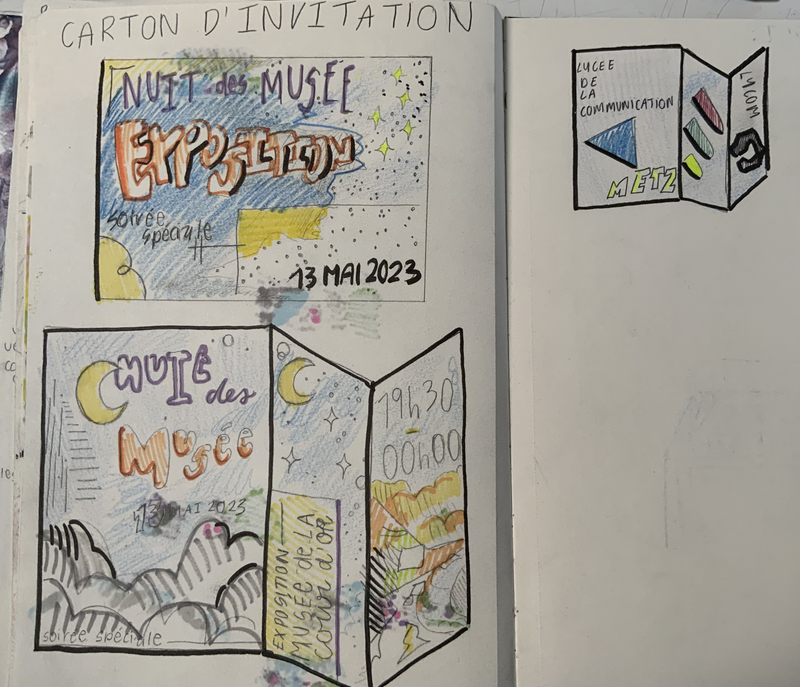 CARTON D'INVITATION
NUIT des MUSÉE
EXPOSITION
soirée
spéciale
13 MAI 2023
NUIT
des
Musée
13 MAI 2023
soirée spéciale
EXPOSITION
MUSÉE de LA
COUR d'OR
19h30
00h00
LYCEE
DE
LA
COMMUNICATION
METZ
LYCOM